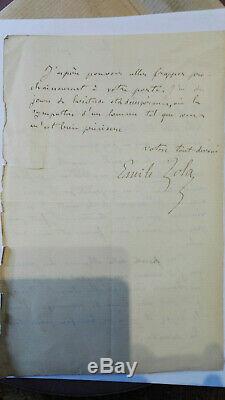 J'espère pouvoir aller frapper pro-
chainement à votre porte. J'ai des
jours de lassitude et de
sympathie d'un homme tel que vous
m'est bien précieuse
votre tout dévoué
Emile Zola
ebay